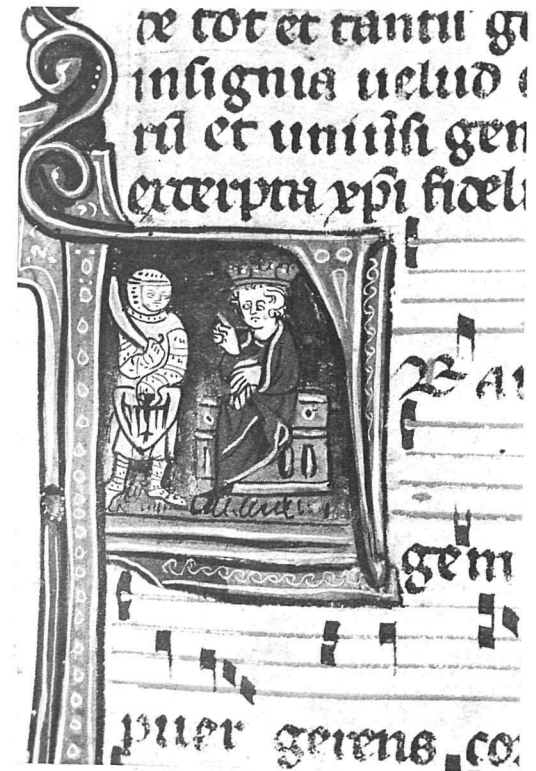 de tot et tantu g
insignia uelud
rū et uniuˀsi gen
excerpta xp̄i fidel
R au
gem
puer gerens co